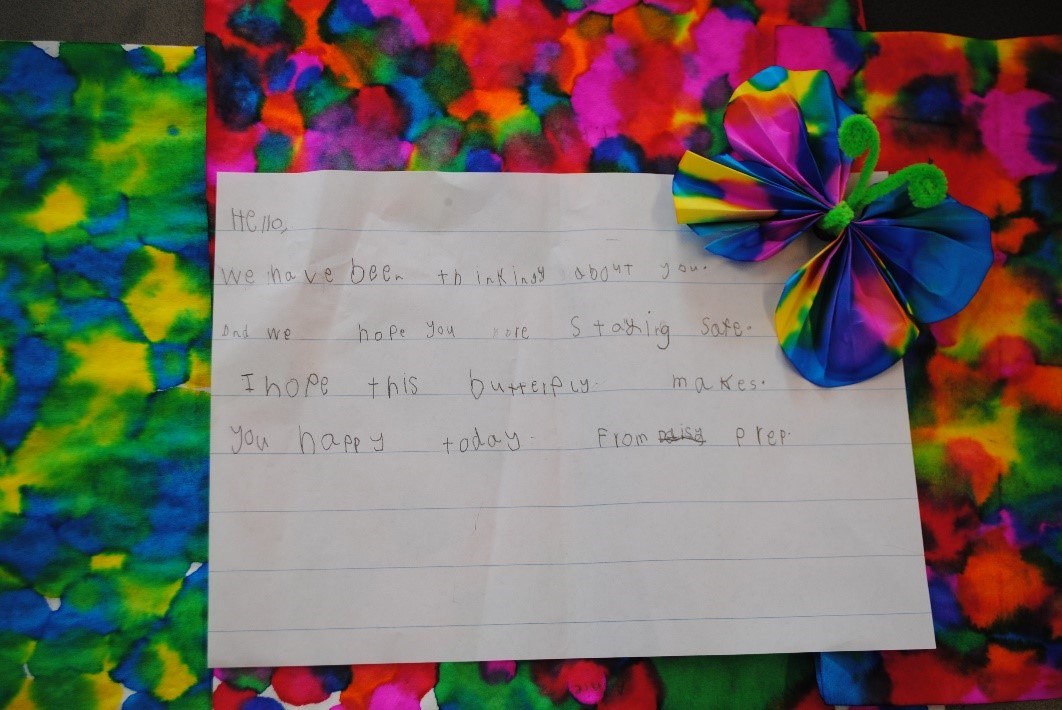 Hello,
We have been thinkindy about you.
And we hope you are staying safe.
I hope this butterfly. makes.
you happy today. From prep.